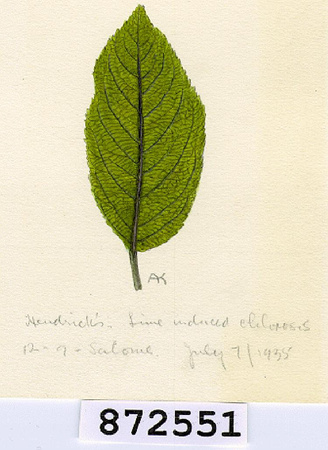 AK
Hendrick's. Lime induced chlorosis
12-9-Salome. July 7/1935
872551